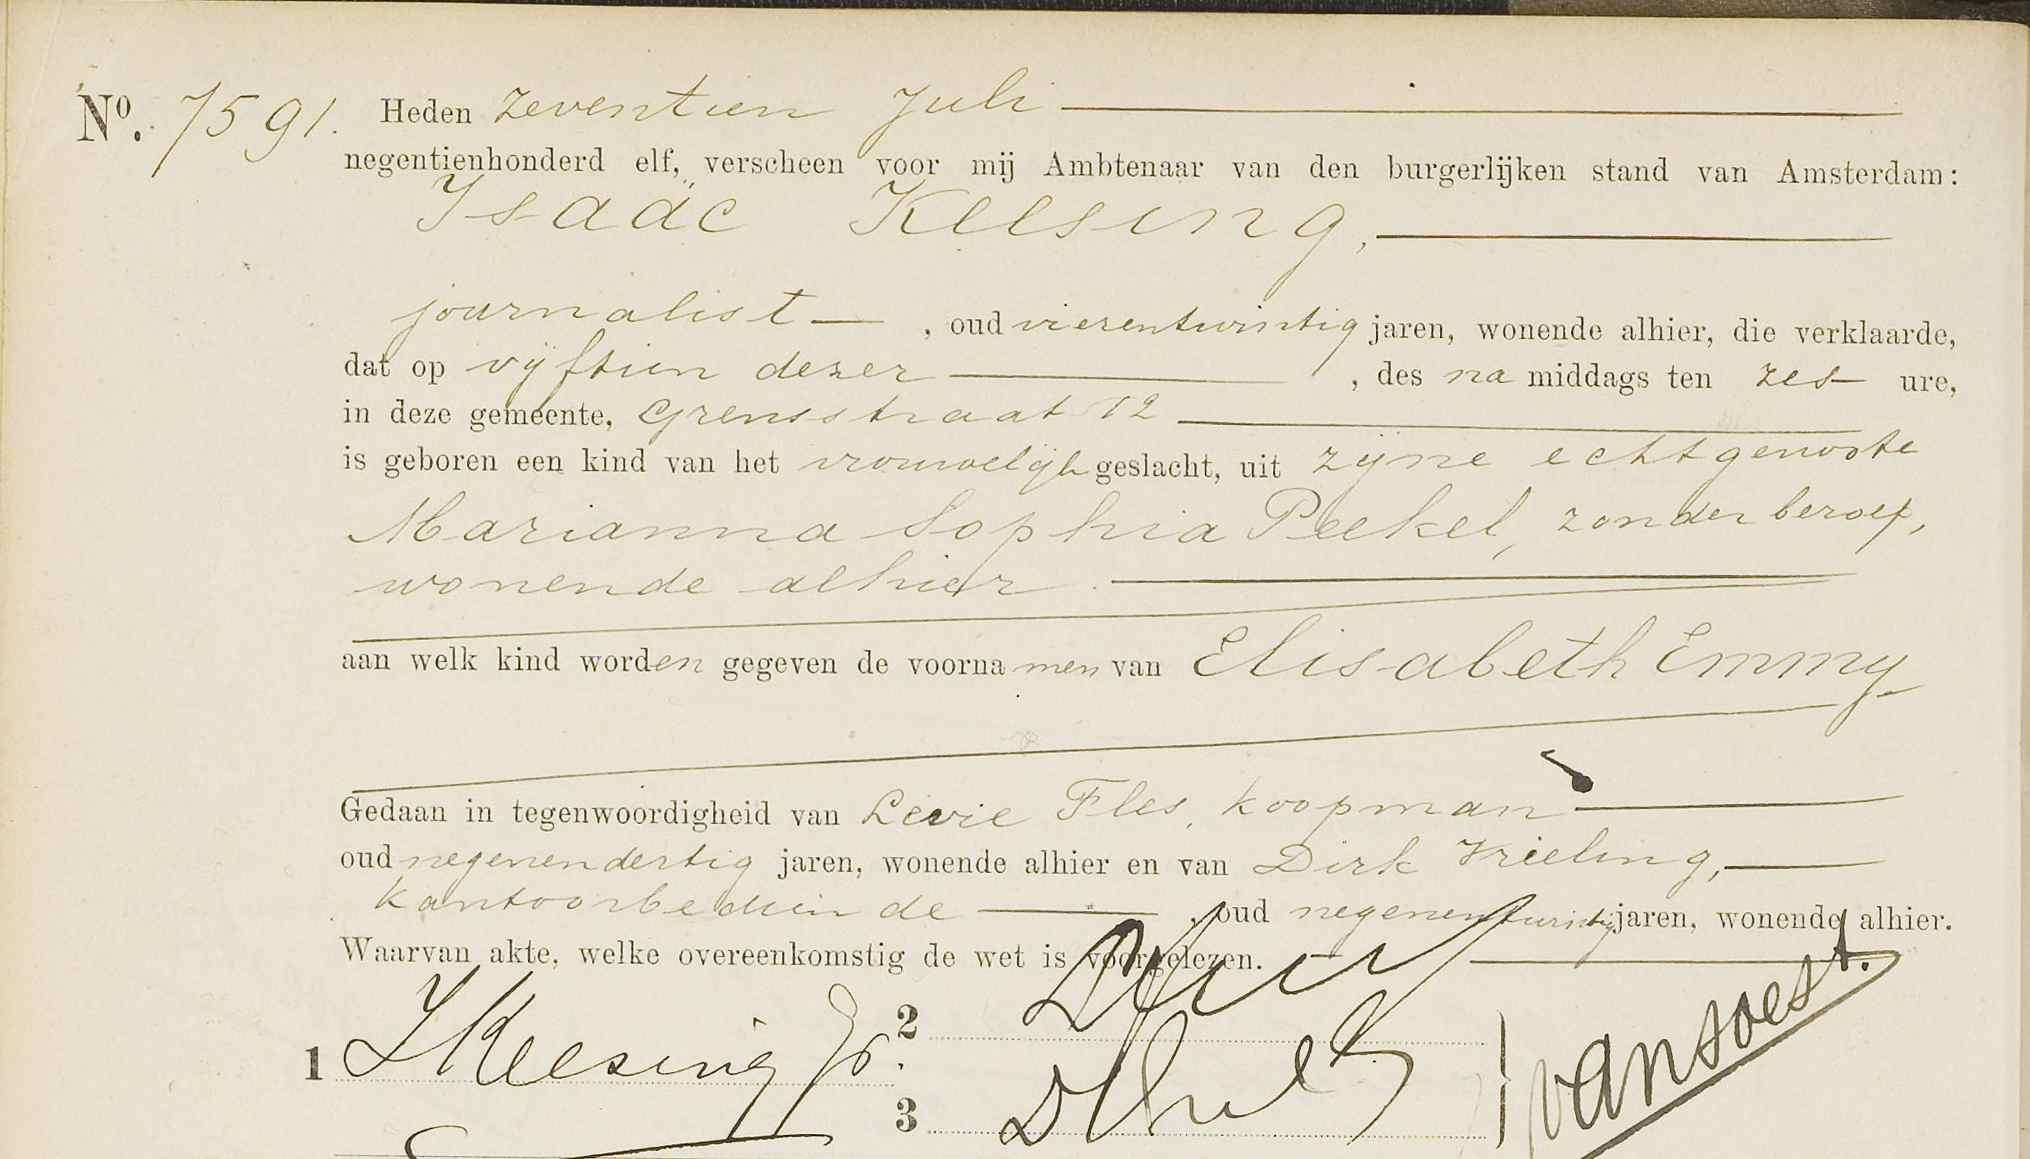 Nº. 7591. Heden zeventien Juli
negentienhonderd elf, verscheen voor mij Ambtenaar van den burgerlijken stand van Amsterdam:
Isaäc Keesing,
journalist, oud vierentwintig jaren, wonende alhier, die verklaarde,
dat op vijftien dezer, des na middags ten zes ure,
in deze gemeente, Grensstraat 12
is geboren een kind van het vrouwelijk geslacht, uit zijne echtgenoote
Marianna Sophia Peekel, zonder beroep,
wonende alhier
aan welk kind worden gegeven de voornamen van Elisabeth Emmy
Gedaan in tegenwoordigheid van Levie Fles, koopman
oud negenendertig jaren, wonende alhier en van Dirk Vrieling,
kantoorbediende, oud negenentwintig jaren, wonende alhier.
Waarvan akte, welke overeenkomstig de wet is voorgelezen.
1 I Keesing Jr. 2
3 van Soest.